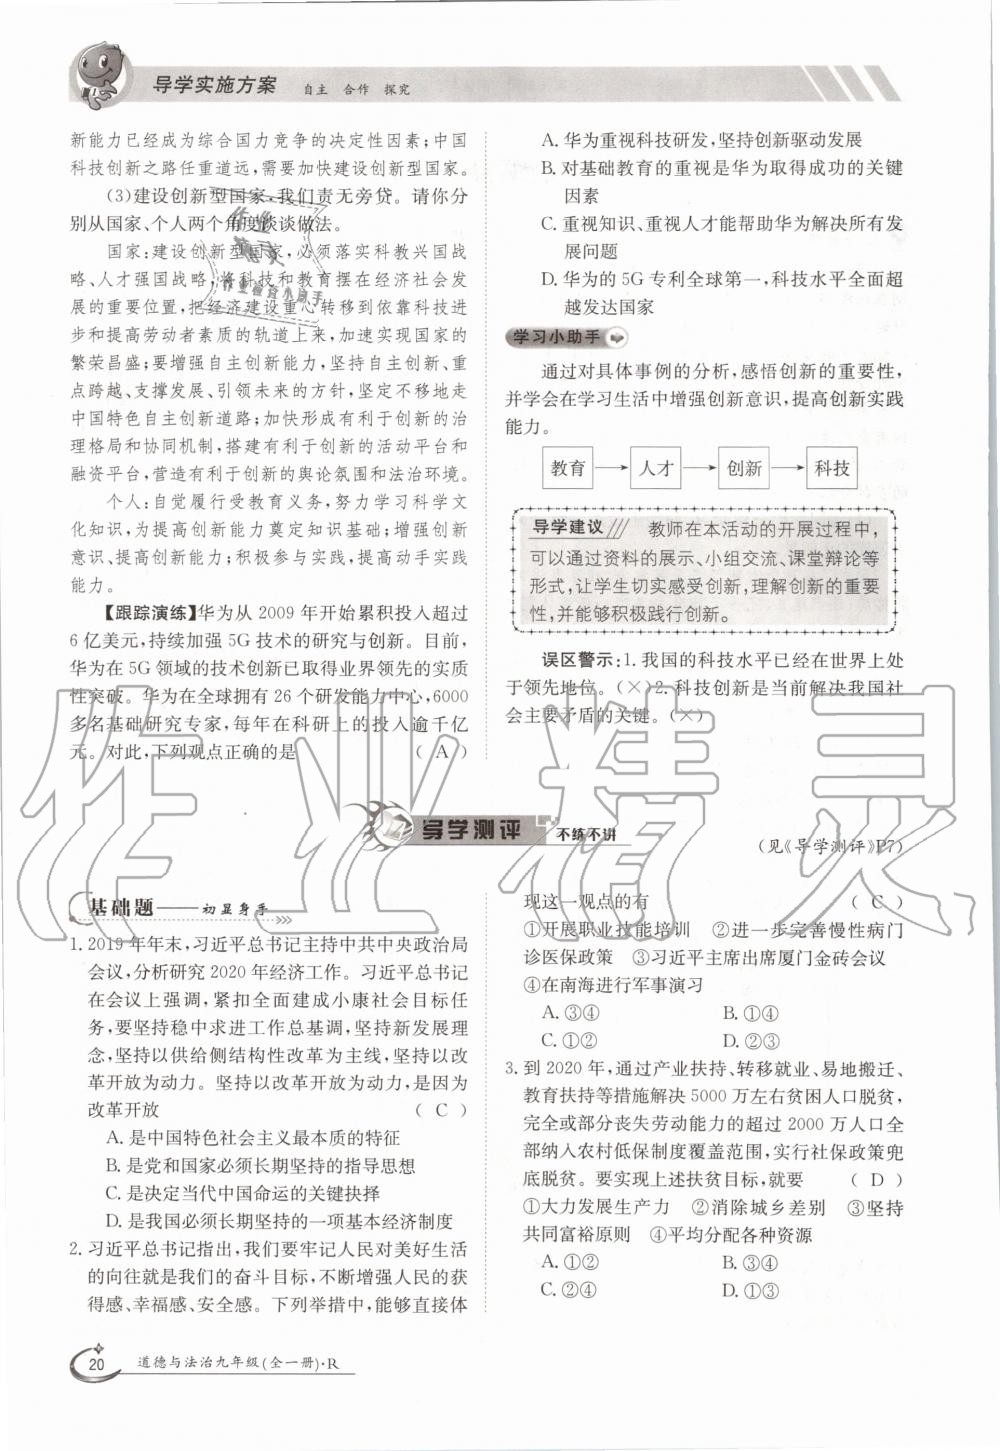 导学实施方案 自主 合作 探究
新能力已经成为综合国力竞争的决定性因素;中国
科技创新之路任重道远,需要加快建设创新型国家。
(3)建设创新型国家,我们责无旁贷。请你分
别从国家、个人两个角度谈谈做法。
国家:建设创新型国家,必须落实科教兴国战
略、人才强国战略,将科技和教育摆在经济社会发
展的重要位置,把经济建设重心转移到依靠科技进
步和提高劳动者素质的轨道上来,加速实现国家的
繁荣昌盛;要增强自主创新能力,坚持自主创新、重
点跨越、支撑发展、引领未来的方针,坚定不移地走
中国特色自主创新道路;加快形成有利于创新的治
理格局和协同机制,搭建有利于创新的活动平台和
融资平台,营造有利于创新的舆论氛围和法治环境。
个人:自觉履行受教育义务,努力学习科学文
化知识,为提高创新能力奠定知识基础;增强创新
意识、提升创新能力;积极参与实践,提高动手实践
能力。
【跟踪演练】华为从 2009 年开始累积投入超过
6 亿美元,持续加强 5G 技术的研究与创新。目前,
华为在 5G 领域的技术创新已取得业界领先的实质
性突破。华为在全球拥有 26 个研发能力中心,6000
多名基础研究专家,每年在科研上的投入逾千亿
元。对此,下列观点正确的是 ( A )
A. 华为重视科技研发,坚持创新驱动发展
B. 对基础教育的重视是华为取得成功的关键
因素
C. 重视知识、重视人才能帮助华为解决所有发
展问题
D. 华为的 5G 专利全球第一,科技水平全面超
越发达国家
学习小助手
通过对具体事例的分析,感悟创新的重要性,
并学会在学习生活中增强创新意识,提高创新实践
能力。
教育 → 人才 → 创新 → 科技
导学建议 教师在本活动的开展过程中,
可以通过资料的展示、小组交流、课堂辩论等
形式,让学生切实感受创新,理解创新的重要
性,并能够积极践行创新。
误区警示:1. 我国的科技水平已经在世界上处
于领先地位。(×)2. 科技创新是当前解决我国社
会主要矛盾的关键。(×)
导学测评 不练不讲
(见《导学测评》P7)
基础题——初显身手
1. 2019 年年末,习近平总书记主持中共中央政治局
会议,分析研究 2020 年经济工作。习近平总书记
在会议上强调,紧扣全面建成小康社会目标任
务,要坚持稳中求进工作总基调,坚持新发展理
念,坚持以供给侧结构性改革为主线,坚持以改
革开放为动力。坚持以改革开放为动力,是因为
改革开放 ( C )
A. 是中国特色社会主义最本质的特征
B. 是党和国家必须长期坚持的指导思想
C. 是决定当代中国命运的关键抉择
D. 是我国必须长期坚持的一项基本经济制度
2. 习近平总书记指出,我们要牢记人民对美好生活
的向往就是我们的奋斗目标,不断增强人民的获
得感、幸福感、安全感。下列举措中,能够直接体
现这一观点的有 ( C )
①开展职业技能培训 ②进一步完善慢性病门
诊医保政策 ③习近平主席出席厦门金砖会议
④在南海进行军事演习
A. ③④ B. ①④
C. ①② D. ②③
3. 到 2020 年,通过产业扶持、转移就业、易地搬迁、
教育扶持等措施解决 5000 万左右贫困人口脱贫,
完全或部分丧失劳动能力的超过 2000 万人口全
部纳入农村低保制度覆盖范围,实行社保政策兜
底脱贫。要实现上述扶贫目标,就要 ( D )
①大力发展生产力 ②消除城乡差别 ③坚持
共同富裕原则 ④平均分配各种资源
A. ①② B. ③④
C. ②④ D. ①③
20 道德与法治九年级(全一册)·R
作业精灵